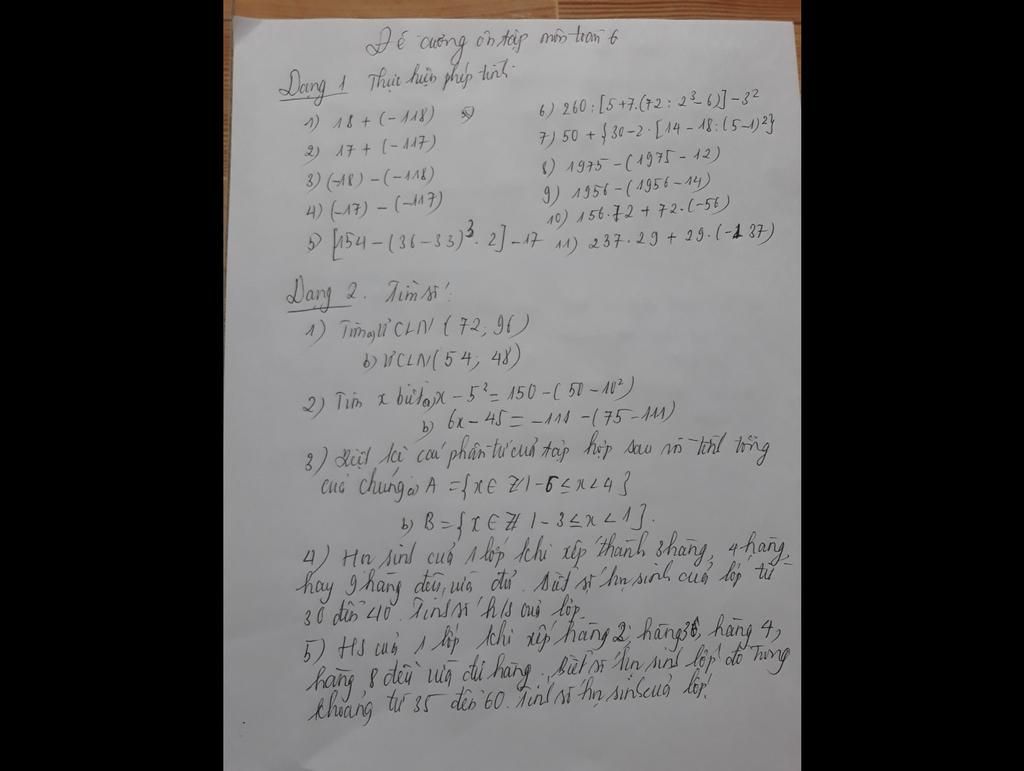 Đề cương ôn tập môn toán 6
Dạng 1 Thực hiện phép tính
1) 18 + (-118)
2) 17 + (-117)
3) (-18) - (-118)
4) (-17) - (-117)
5) [154 - (36 - 33)³ . 2] - 17
6) 260 : [5 + 7.(72 : 2³ - 6)] - 3²
7) 50 + {30 - 2 . [14 - 18 : (5 - 1)²}
8) 1975 - (1975 - 12)
9) 1956 - (1956 - 14)
10) 156.72 + 72.(-56)
11) 237.29 + 29.(-137)
Dạng 2. Tìm số:
1) Tìm a) ƯCLN (72; 96)
b) ƯCLN (54; 48)
2) Tìm x biết a) x - 5² = 150 - (50 - 10²)
b) 6x - 45 = -111 - (75 - 111)
3) Liệt kê các phần tử của tập hợp sau rồi tính tổng
của chúng a) A = {x ∈ Z / -5 ≤ x < 4}
b) B = {x ∈ Z / -3 ≤ x < 1}.
4) Học sinh của 1 lớp khi xếp thành 3 hàng, 4 hàng,
hay 9 hàng đều vừa đủ. Biết số học sinh của lớp từ
30 đến 40. Tính số h/s của lớp.
5) HS của 1 lớp khi xếp hàng 2, hàng 3, hàng 4,
hàng 8 đều vừa đủ hàng. Biết số học sinh lớp đó trong
khoảng từ 35 đến 60. Tính số học sinh của lớp.